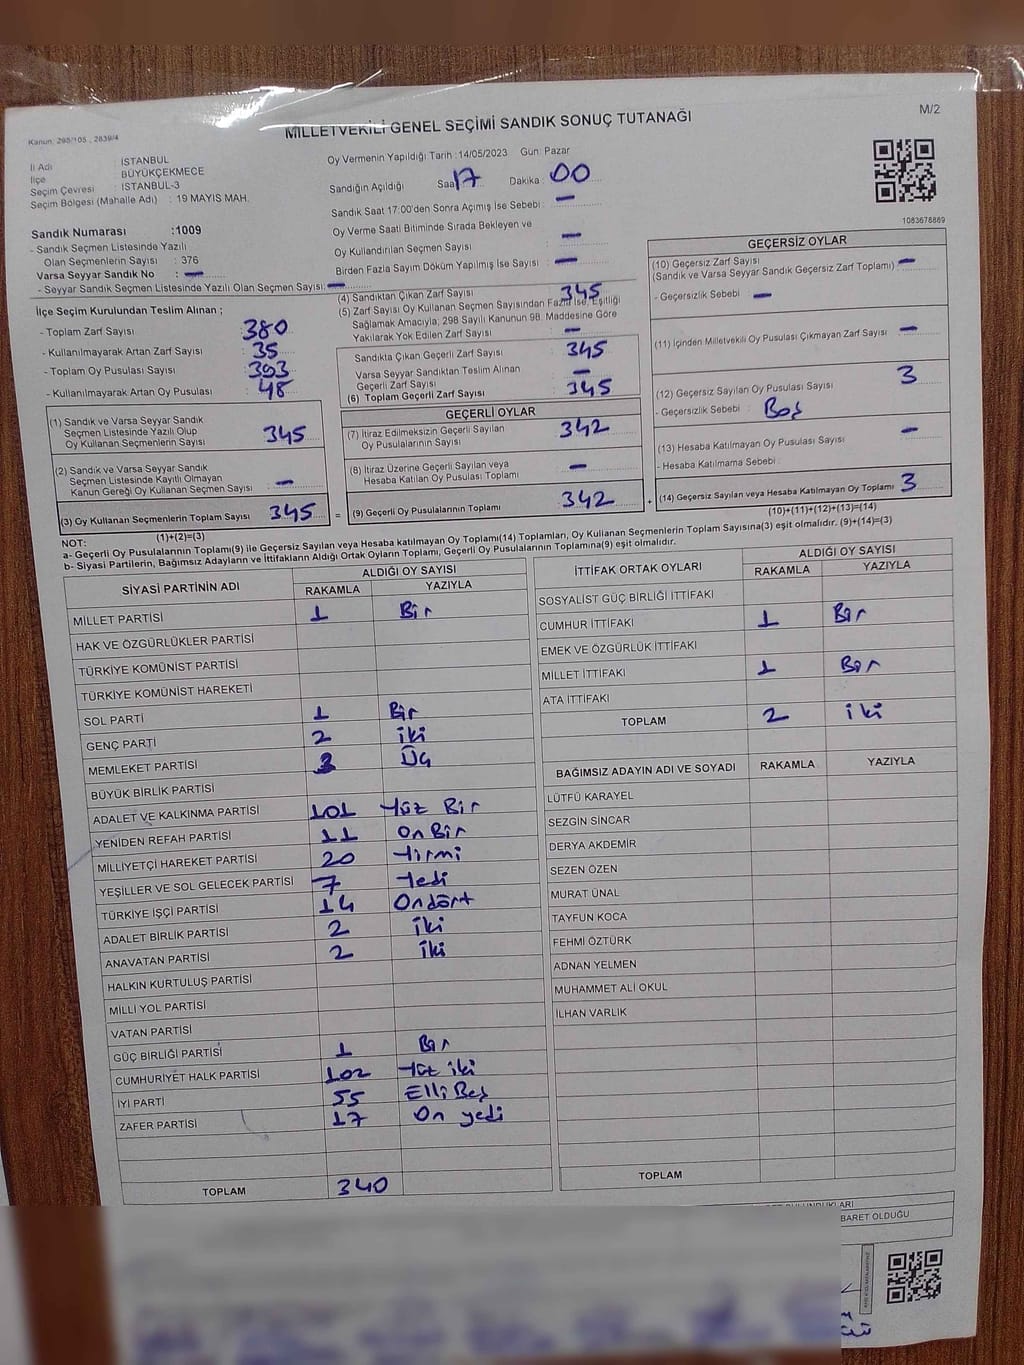 Kanun: 298/105 , 2839/4
MİLLETVEKİLİ GENEL SEÇİMİ SANDIK SONUÇ TUTANAĞI
M/2
İl Adı : İSTANBUL
İlçe : BÜYÜKÇEKMECE
Seçim Çevresi : İSTANBUL-3
Seçim Bölgesi (Mahalle Adı) : 19 MAYIS MAH.
Sandık Numarası :1009
- Sandık Seçmen Listesinde Yazılı
Olan Seçmenlerin Sayısı : 376
Varsa Seyyar Sandık No : —
- Seyyar Sandık Seçmen Listesinde Yazılı Olan Seçmen Sayısı: —
Oy Vermenin Yapıldığı Tarih :14/05/2023 Gün: Pazar
Sandığın Açıldığı Saat 17 Dakika : 00
Sandık Saat 17:00'den Sonra Açılmış İse Sebebi : —
Oy Verme Saati Bitiminde Sırada Bekleyen ve
Oy Kullandırılan Seçmen Sayısı : —
Birden Fazla Sayım Döküm Yapılmış İse Sayısı : —
1083678869
İlçe Seçim Kurulundan Teslim Alınan ;
- Toplam Zarf Sayısı : 380
- Kullanılmayarak Artan Zarf Sayısı : 35
- Toplam Oy Pusulası Sayısı : 393
- Kullanılmayarak Artan Oy Pusulası : 48
(1) Sandık ve Varsa Seyyar Sandık
Seçmen Listesinde Yazılı Olup
Oy Kullanan Seçmenlerin Sayısı 345
(2) Sandık ve Varsa Seyyar Sandık
Seçmen Listesinde Kayıtlı Olmayan
Kanun Gereği Oy Kullanan Seçmen Sayısı —
(3) Oy Kullanan Seçmenlerin Toplam Sayısı 345 =
(1)+(2)=(3)
(4) Sandıktan Çıkan Zarf Sayısı 345
(5) Zarf Sayısı Oy Kullanan Seçmen Sayısından Fazla İse, Eşitliği
Sağlamak Amacıyla, 298 Sayılı Kanunun 98. Maddesine Göre
Yakılarak Yok Edilen Zarf Sayısı : —
Sandıkta Çıkan Geçerli Zarf Sayısı 345
Varsa Seyyar Sandıktan Teslim Alınan
Geçerli Zarf Sayısı —
(6) Toplam Geçerli Zarf Sayısı 345
GEÇERLİ OYLAR
(7) İtiraz Edilmeksizin Geçerli Sayılan
Oy Pusulalarının Sayısı 342
(8) İtiraz Üzerine Geçerli Sayılan veya
Hesaba Katılan Oy Pusulası Toplamı —
(9) Geçerli Oy Pusulalarının Toplamı 342 +
GEÇERSİZ OYLAR
(10) Geçersiz Zarf Sayısı
(Sandık ve Varsa Seyyar Sandık Geçersiz Zarf Toplamı) —
- Geçersizlik Sebebi —
(11) İçinden Milletvekili Oy Pusulası Çıkmayan Zarf Sayısı —
(12) Geçersiz Sayılan Oy Pusulası Sayısı 3
- Geçersizlik Sebebi : Boş
(13) Hesaba Katılmayan Oy Pusulası Sayısı —
- Hesaba Katılmama Sebebi :
(14) Geçersiz Sayılan veya Hesaba Katılmayan Oy Toplamı 3
(10)+(11)+(12)+(13)=(14)
NOT:
a- Geçerli Oy Pusulalarının Toplamı(9) ile Geçersiz Sayılan veya Hesaba katılmayan Oy Toplamı(14) Toplamları, Oy Kullanan Seçmenlerin Toplam Sayısına(3) eşit olmalıdır. (9)+(14)=(3)
b- Siyasi Partilerin, Bağımsız Adayların ve İttifakların Aldığı Ortak Oyların Toplamı, Geçerli Oy Pusulalarının Toplamına(9) eşit olmalıdır.
SİYASİ PARTİNİN ADI ALDIĞI OY SAYISI
RAKAMLA YAZIYLA
MİLLET PARTİSİ 1 Bir
HAK VE ÖZGÜRLÜKLER PARTİSİ
TÜRKİYE KOMÜNİST PARTİSİ
TÜRKİYE KOMÜNİST HAREKETİ
SOL PARTİ 1 Bir
GENÇ PARTİ 2 iki
MEMLEKET PARTİSİ 3 Üç
BÜYÜK BİRLİK PARTİSİ
ADALET VE KALKINMA PARTİSİ 101 Yüz Bir
YENİDEN REFAH PARTİSİ 11 On Bir
MİLLİYETÇİ HAREKET PARTİSİ 20 Yirmi
YEŞİLLER VE SOL GELECEK PARTİSİ 7 Yedi
TÜRKİYE İŞÇİ PARTİSİ 14 Ondört
ADALET BİRLİK PARTİSİ 2 iki
ANAVATAN PARTİSİ 2 iki
HALKIN KURTULUŞ PARTİSİ
MİLLİ YOL PARTİSİ
VATAN PARTİSİ
GÜÇ BİRLİĞİ PARTİSİ 1 Bir
CUMHURİYET HALK PARTİSİ 102 Yüz iki
İYİ PARTİ 55 Elli Beş
ZAFER PARTİSİ 17 On yedi
TOPLAM 340
İTTİFAK ORTAK OYLARI ALDIĞI OY SAYISI
RAKAMLA YAZIYLA
SOSYALİST GÜÇ BİRLİĞİ İTTİFAKI
CUMHUR İTTİFAKI 1 Bir
EMEK VE ÖZGÜRLÜK İTTİFAKI
MİLLET İTTİFAKI 1 Bir
ATA İTTİFAKI
TOPLAM 2 iki
BAĞIMSIZ ADAYIN ADI VE SOYADI RAKAMLA YAZIYLA
LÜTFÜ KARAYEL
SEZGİN SİNCAR
DERYA AKDEMİR
SEZEN ÖZEN
MURAT ÜNAL
TAYFUN KOCA
FEHMİ ÖZTÜRK
ADNAN YELMEN
MUHAMMET ALİ OKUL
İLHAN VARLIK
TOPLAM
BARET OLDUĞU